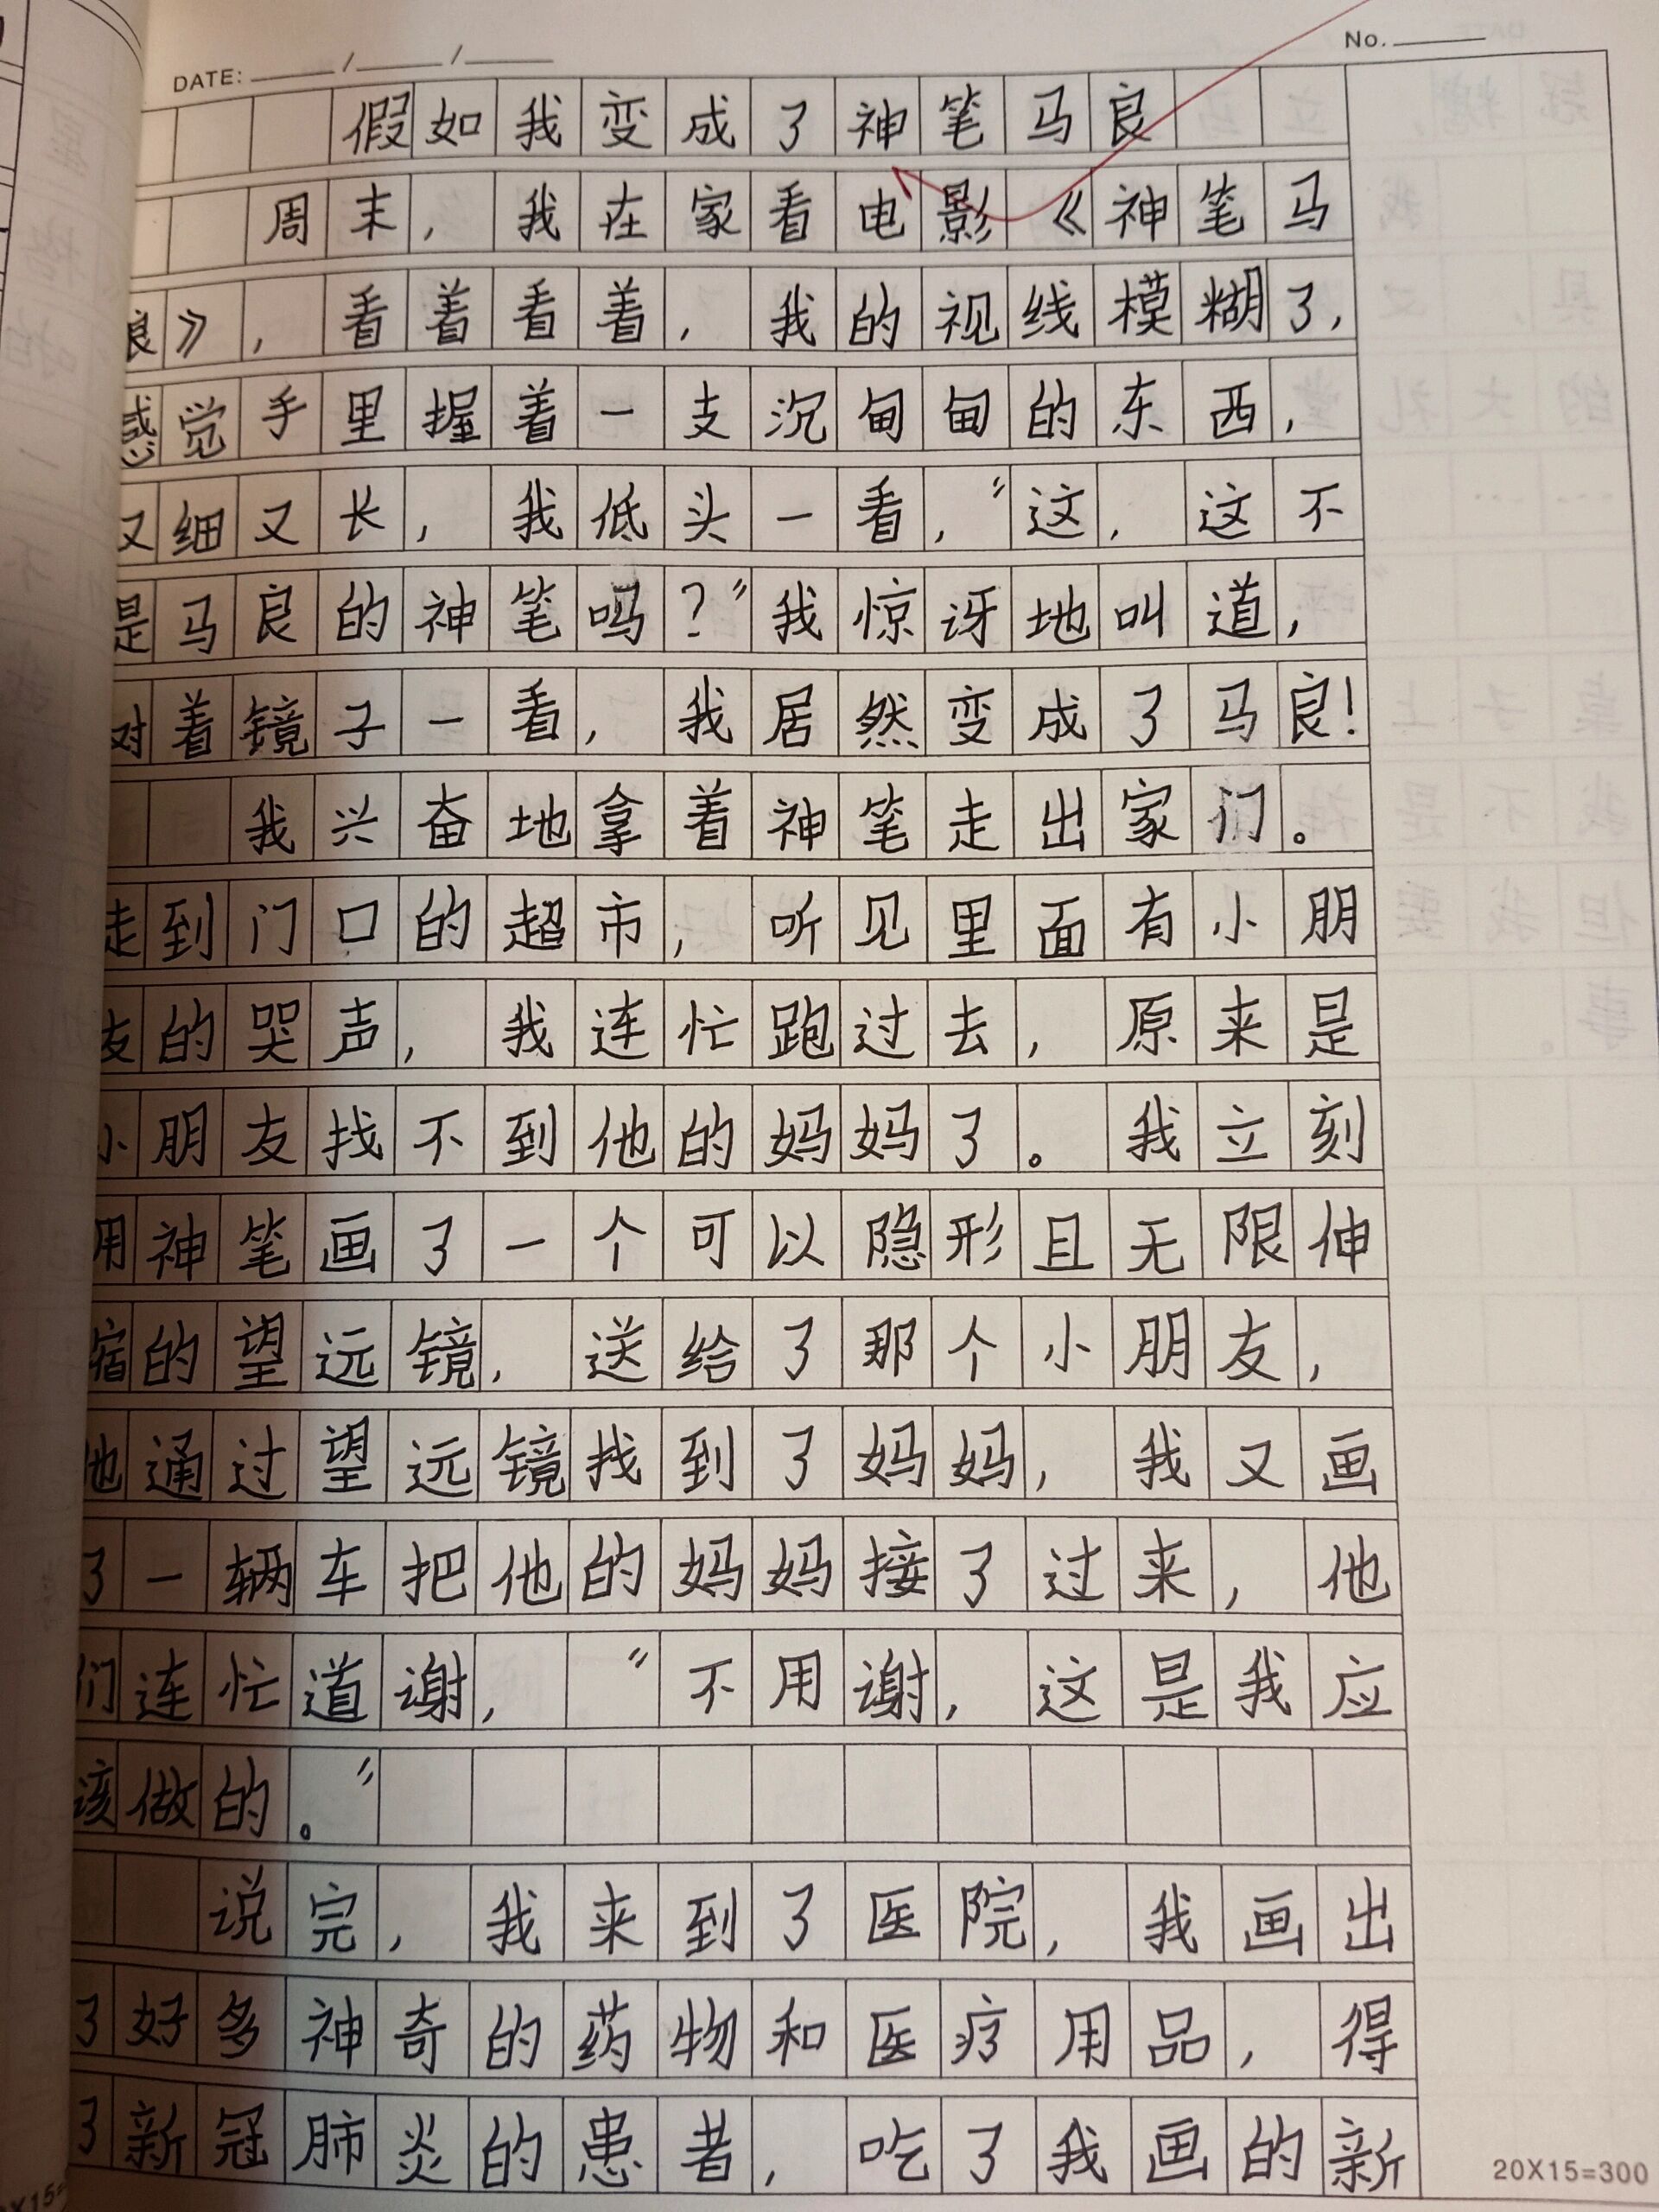 DATE: ____/____/____
No. ____
假如我变成了神笔马良
周末，我在家看电影《神笔马
良》，看着看着，我的视线模糊了，
感觉手里握着一支沉甸甸的东西，
又细又长，我低头一看，“这，这不
是马良的神笔吗？”我惊讶地叫道，
对着镜子一看，我居然变成了马良！
我兴奋地拿着神笔走出家门。
走到门口的超市，听见里面有小朋
友的哭声，我连忙跑过去，原来是
小朋友找不到他的妈妈了。我立刻
用神笔画了一个可以隐形且无限伸
缩的望远镜，送给了那个小朋友，
他通过望远镜找到了妈妈，我又画
了一辆车把他的妈妈接了过来，他
们连忙道谢，“不用谢，这是我应
该做的。”
说完，我来到了医院，我画出
了好多神奇的药物和医疗用品，得
了新冠肺炎的患者，吃了我画的新
20X15=300